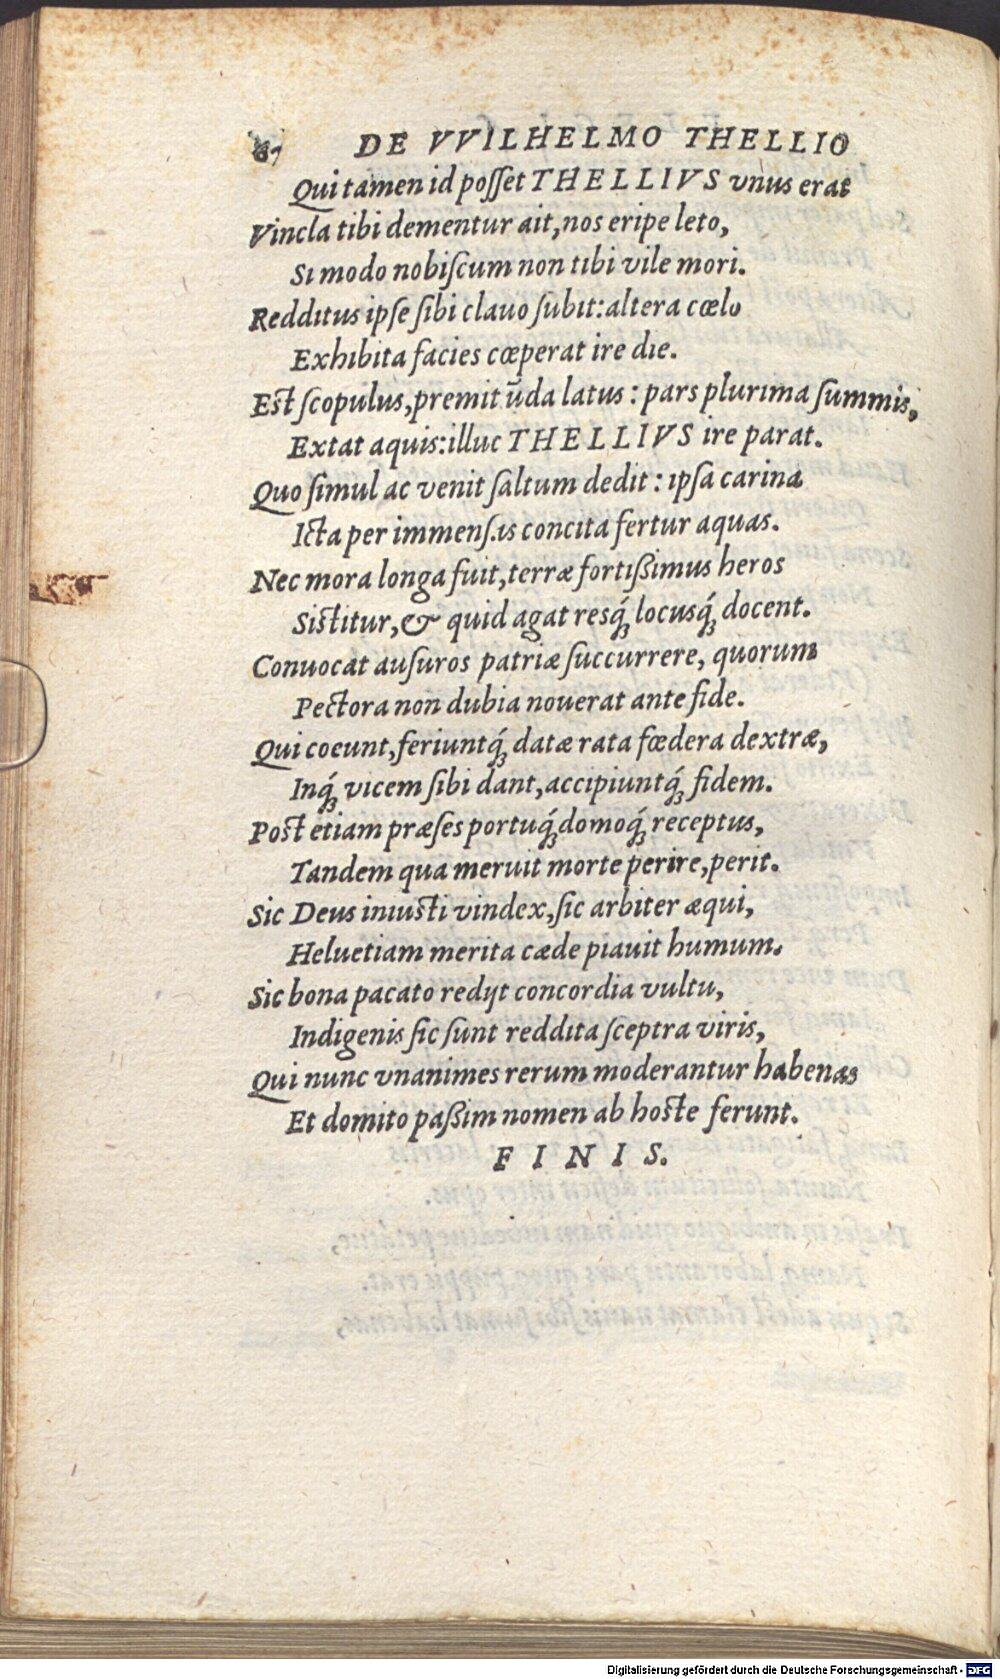 67 DE VVILHELMO THELLIO
Qui tamen id posset THELLIVS vnus erat
Vincla tibi dementur ait, nos eripe leto,
Si modo nobiscum non tibi vile mori.
Redditus ipse sibi clauo subit: altera cœlo
Exhibita facies cœperat ire die.
Est scopulus, premit ūda latus: pars plurima summis,
Extat aquis: illuc THELLIVS ire parat.
Quo simul ac venit saltum dedit: ipsa carina
Icta per immensas concita fertur aquas.
Nec mora longa fuit, terræ fortißimus heros
Sistitur, & quid agat resq́; locusq́; docent.
Conuocat ausuros patriæ succurrere, quorum
Pectora non dubia nouerat ante fide.
Qui coeunt, feriuntq́; datæ rata fœdera dextræ,
Inq́; vicem sibi dant, accipiuntq́; fidem.
Post etiam præses portuq́; domoq́; receptus,
Tandem qua meruit morte perire, perit.
Sic Deus iniusti vindex, sic arbiter æqui,
Heluetiam merita cæde piauit humum.
Sic bona pacato redijt concordia vultu,
Indigenis sic sunt reddita sceptra viris,
Qui nunc vnanimes rerum moderantur habenas
Et domito paßim nomen ab hoste ferunt.
FINIS.
Digitalisierung gefördert durch die Deutsche Forschungsgemeinschaft - DFG